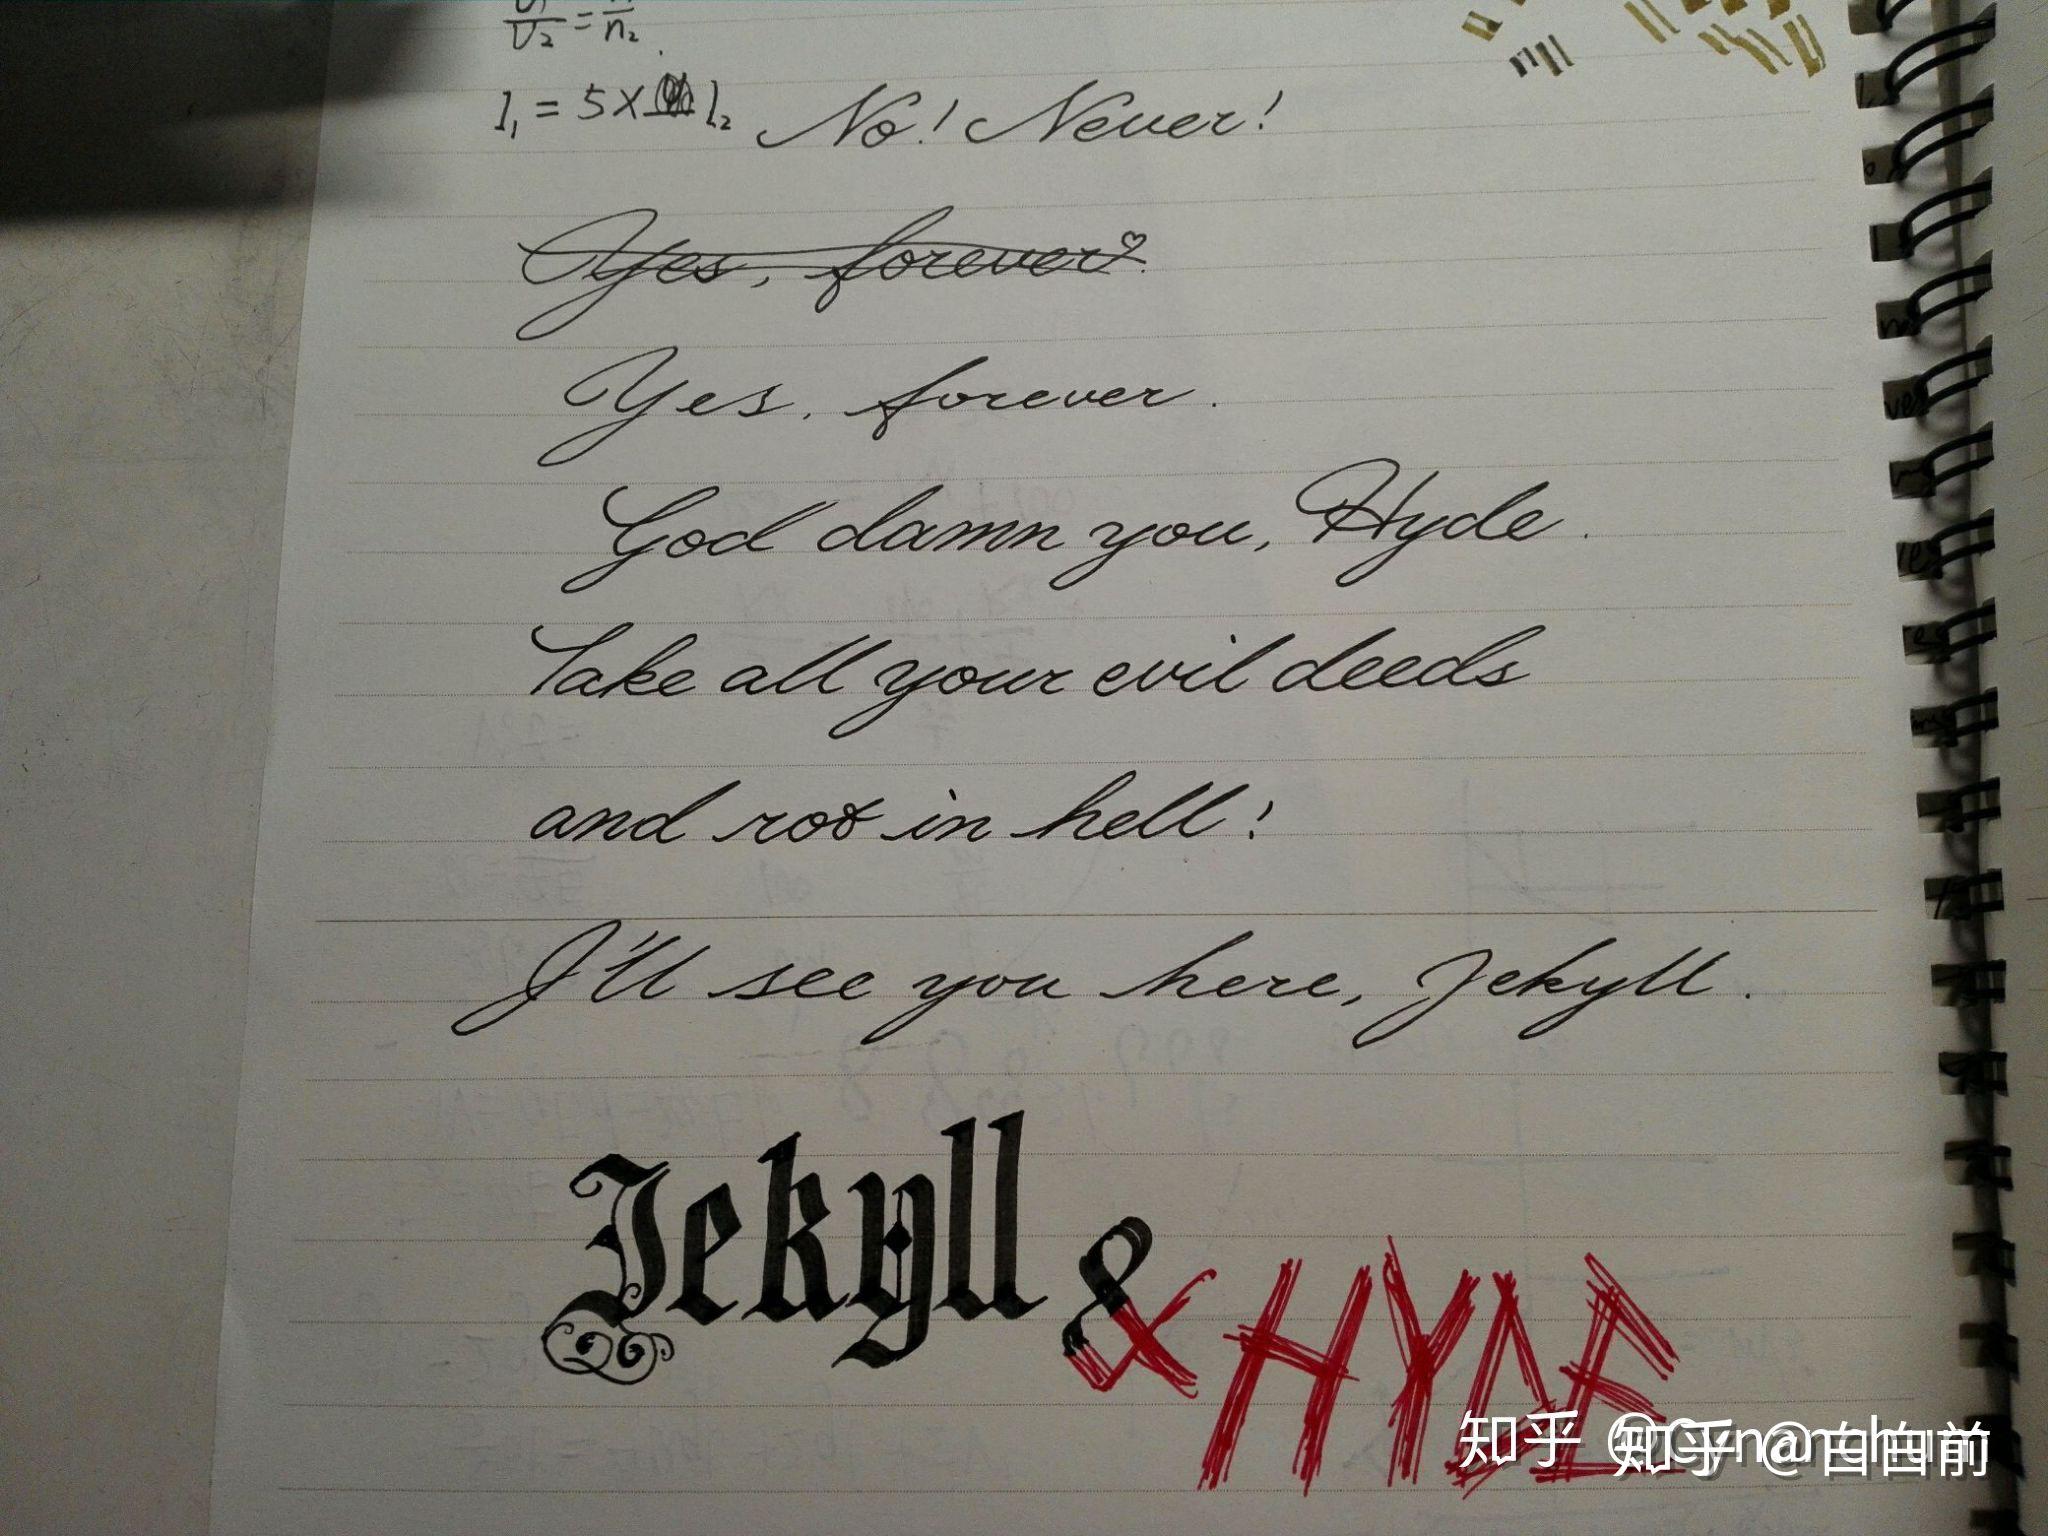 U₂ = n₂
I₁ = 5 × I₂ No! Never!
Yes, forever.
Yes, forever.
God damn you, Hyde.
Take all your evil deeds
and rot in hell!
I'll see you here, Jekyll.
Jekyll & HYDE
知乎 @Cynanchum
知乎 @白白前